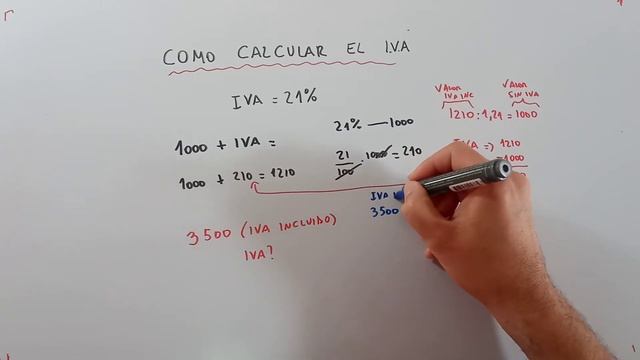 COMO CALCULAR EL I.V.A
IVA = 21%
1000 + IVA =
1000 + 210 = 1210
21% — 1000
21/100 · 1000 = 210
VALOR IVA INC
VALOR SIN IVA
1210 : 1,21 = 1000
IVA => 1210
1000
IVA
3500
3500 (IVA INCLUIDO)
IVA?